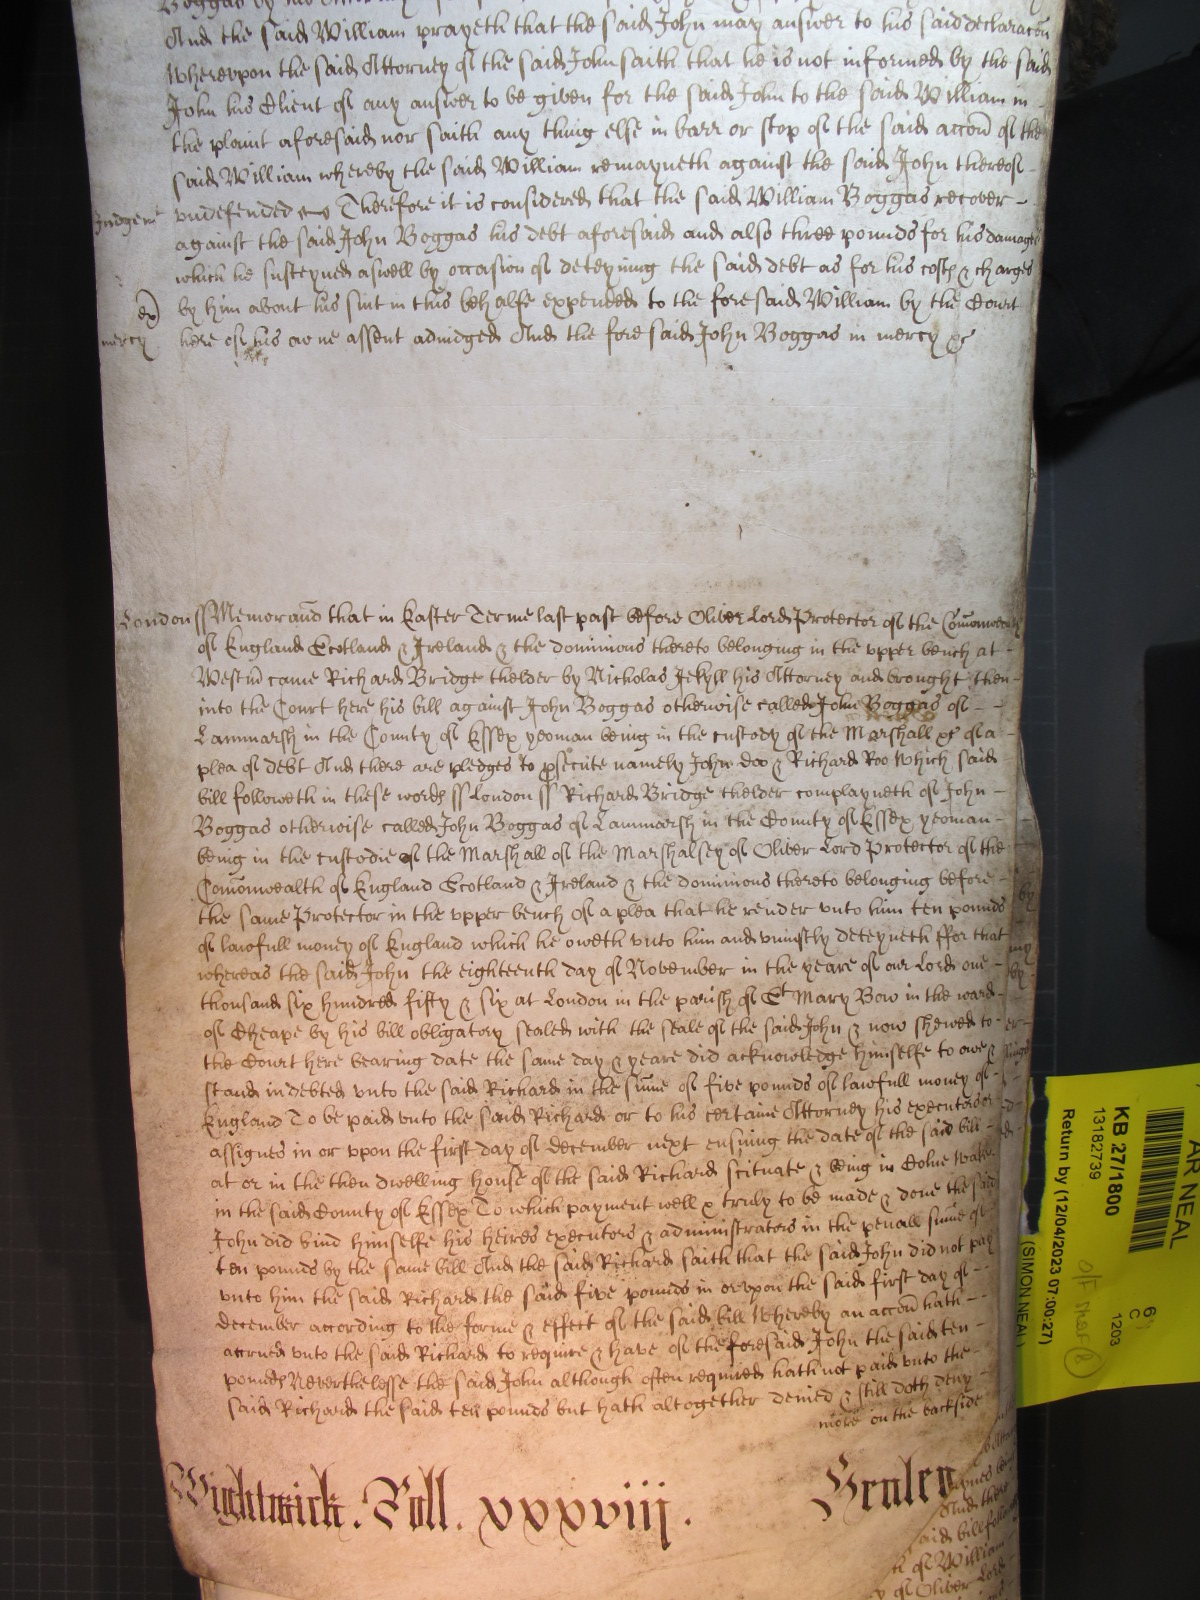 Boggas by his Attorney
And the said William prayeth that the said John may answer to his said declaracon
Wherevpon the said Attorney of the said John saith that he is not informed by the said
John his Client of any answer to be given for the said John to the said William in
the plaint aforesaid nor saith any thing else in barr or stop of the said accon of the
said William whereby the said William remayneth against the said John thereof
Judgemt vndefended Therefore it is considered that the said William Boggas recover
against the said John Boggas his debt aforesaid and also three pounds for his damages
which he susteyned aswell by occasion of deteyning the said debt as for his costs & charges
by him about his suit in this behalfe expended to the foresaid William by the Court
mercy here of his owne assent adiudged And the foresaid John Boggas in mercy &c
London ss Memorand that in Easter Terme last past before Oliver Lord Protector of the Comonwealth
of England Scotland & Ireland & the dominions thereto belonging in the vpper bench at
Westm came Richard Bridge thelder by Nicholas Jekyll his Attorney and brought then
into the Court here his bill against John Boggas otherwise called John Boggas of
Lammarsh in the County of Essex yeoman being in the custody of the Marshall &c of a
plea of debt And there are pledges to psecute namely John doo & Richard Roo Which said
bill followeth in these words ss London ss Richard Bridge thelder complayneth of John
Boggas otherwise called John Boggas of Lammarsh in the County of Essex yeoman
being in the custodie of the Marshall of the Marshalsey of Oliver Lord Protector of the
Comonwealth of England Scotland & Ireland & the dominions thereto belonging before
the same Protector in the vpper bench of a plea that he render vnto him ten pounds
of lawfull money of England which he oweth vnto him and vniustly deteyneth ffor that
whereas the said John the eighteenth day of November in the yeare of our Lord one
thousand six hundred fifty & six at London in the parish of St Mary Bow in the ward
of Cheape by his bill obligatory sealed with the seale of the said John & now shewed to
the Court here bearing date the same day & yeare did acknowledge himselfe to owe &
stand indebted vnto the said Richard in the sume of five pounds of lawfull money of
England To be paid vnto the said Richard or to his certaine Attorney his executors or
assignes in or vpon the first day of december next ensuing the date of the said bill
at or in the then dwelling house of the said Richard scituate & being in Colne Wake
in the said County of Essex To which payment well & truly to be made & done the said
John did bind himselfe his heires executors & administrators in the penall sume of
ten pounds by the same bill And the said Richard saith that the said John did not pay
vnto him the said Richard the said five pounds in or vpon the said first day of
december according to the forme & effect of the said bill Whereby an accon hath
accrued vnto the said Richard to require & have of the foresaid John the said ten
pounds Neverthelesse the said John although often required hath not paid vnto the
said Richard the said ten pounds but hath altogether denied & still doth deny
more on the backside
Wightwick. Roll. xxxviij. Henley
AR NEAL
KB 27/1800
13182739
Return by (12/04/2023 07:00:27)
(SIMON NEAL)
1203